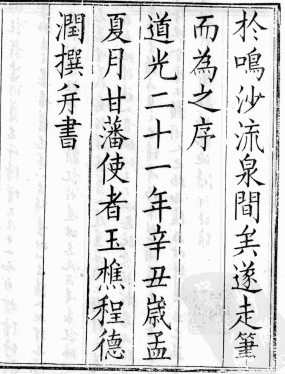 於鳴沙流泉間矣遂走筆
而為之序
道光二十一年辛丑嵗孟
夏月甘藩使者玉樵程德
潤撰并書